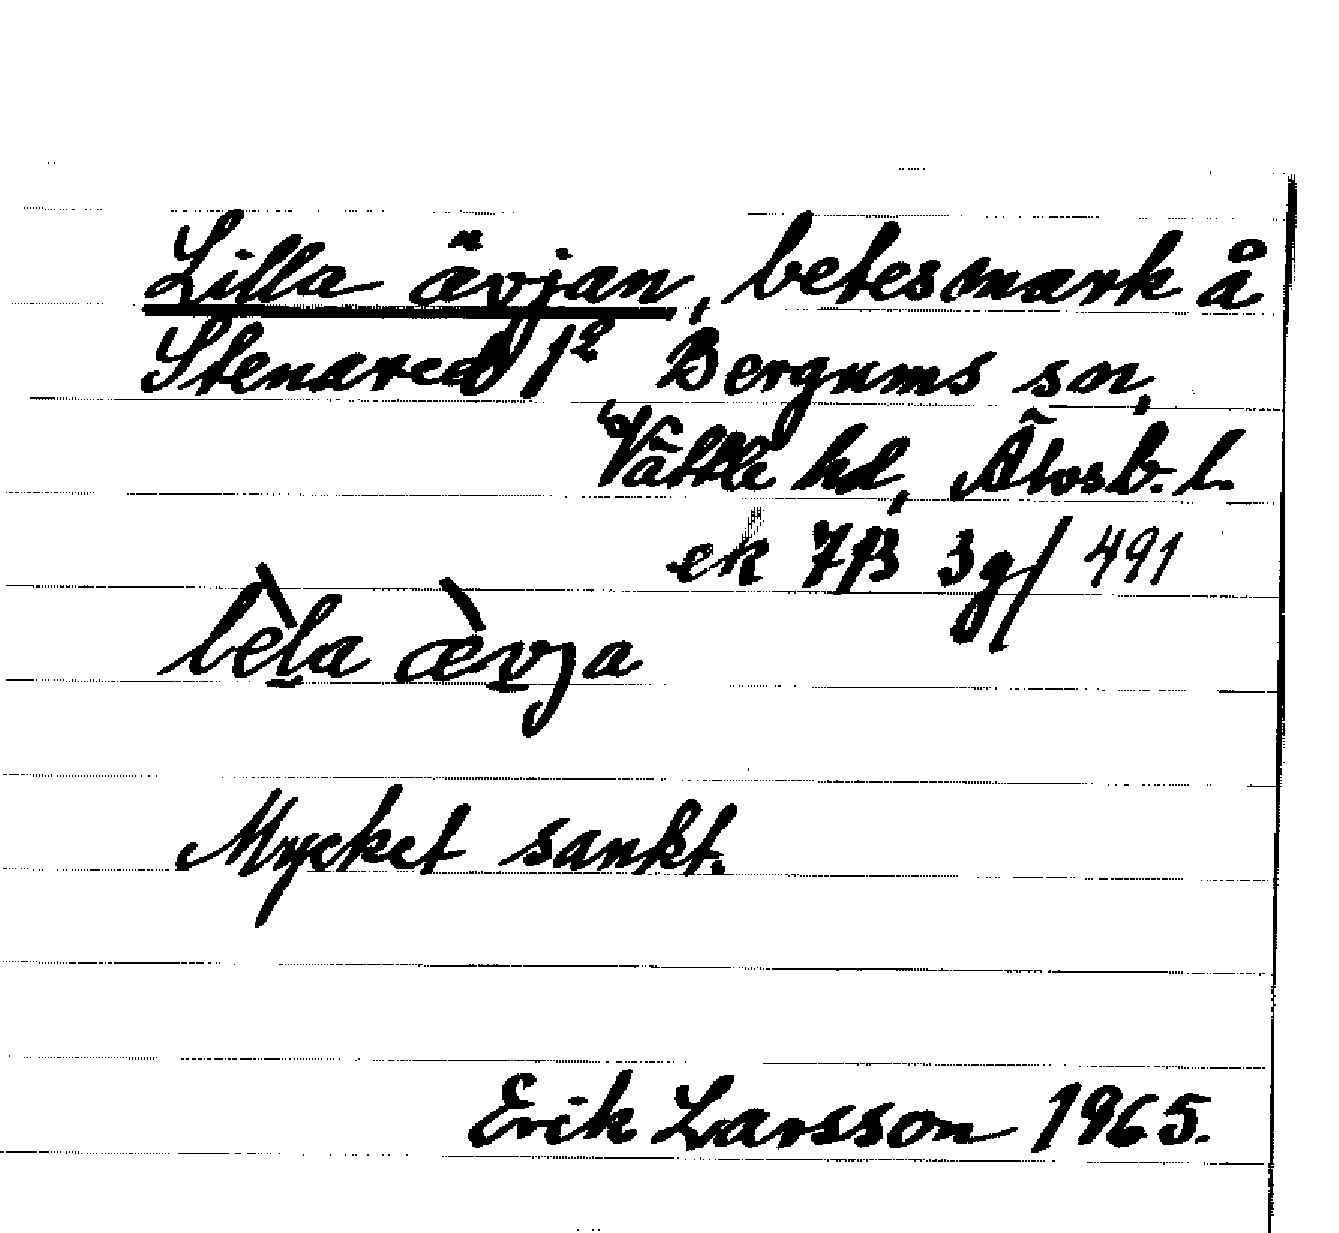 Lilla ävjan, betesmark å
Stenared 1² Bergums sn,
Vättle hd, Älvsb. l.
ek 7B 3g/ 491
ævja
Mycket sankt.
Erik Larsson 1965.